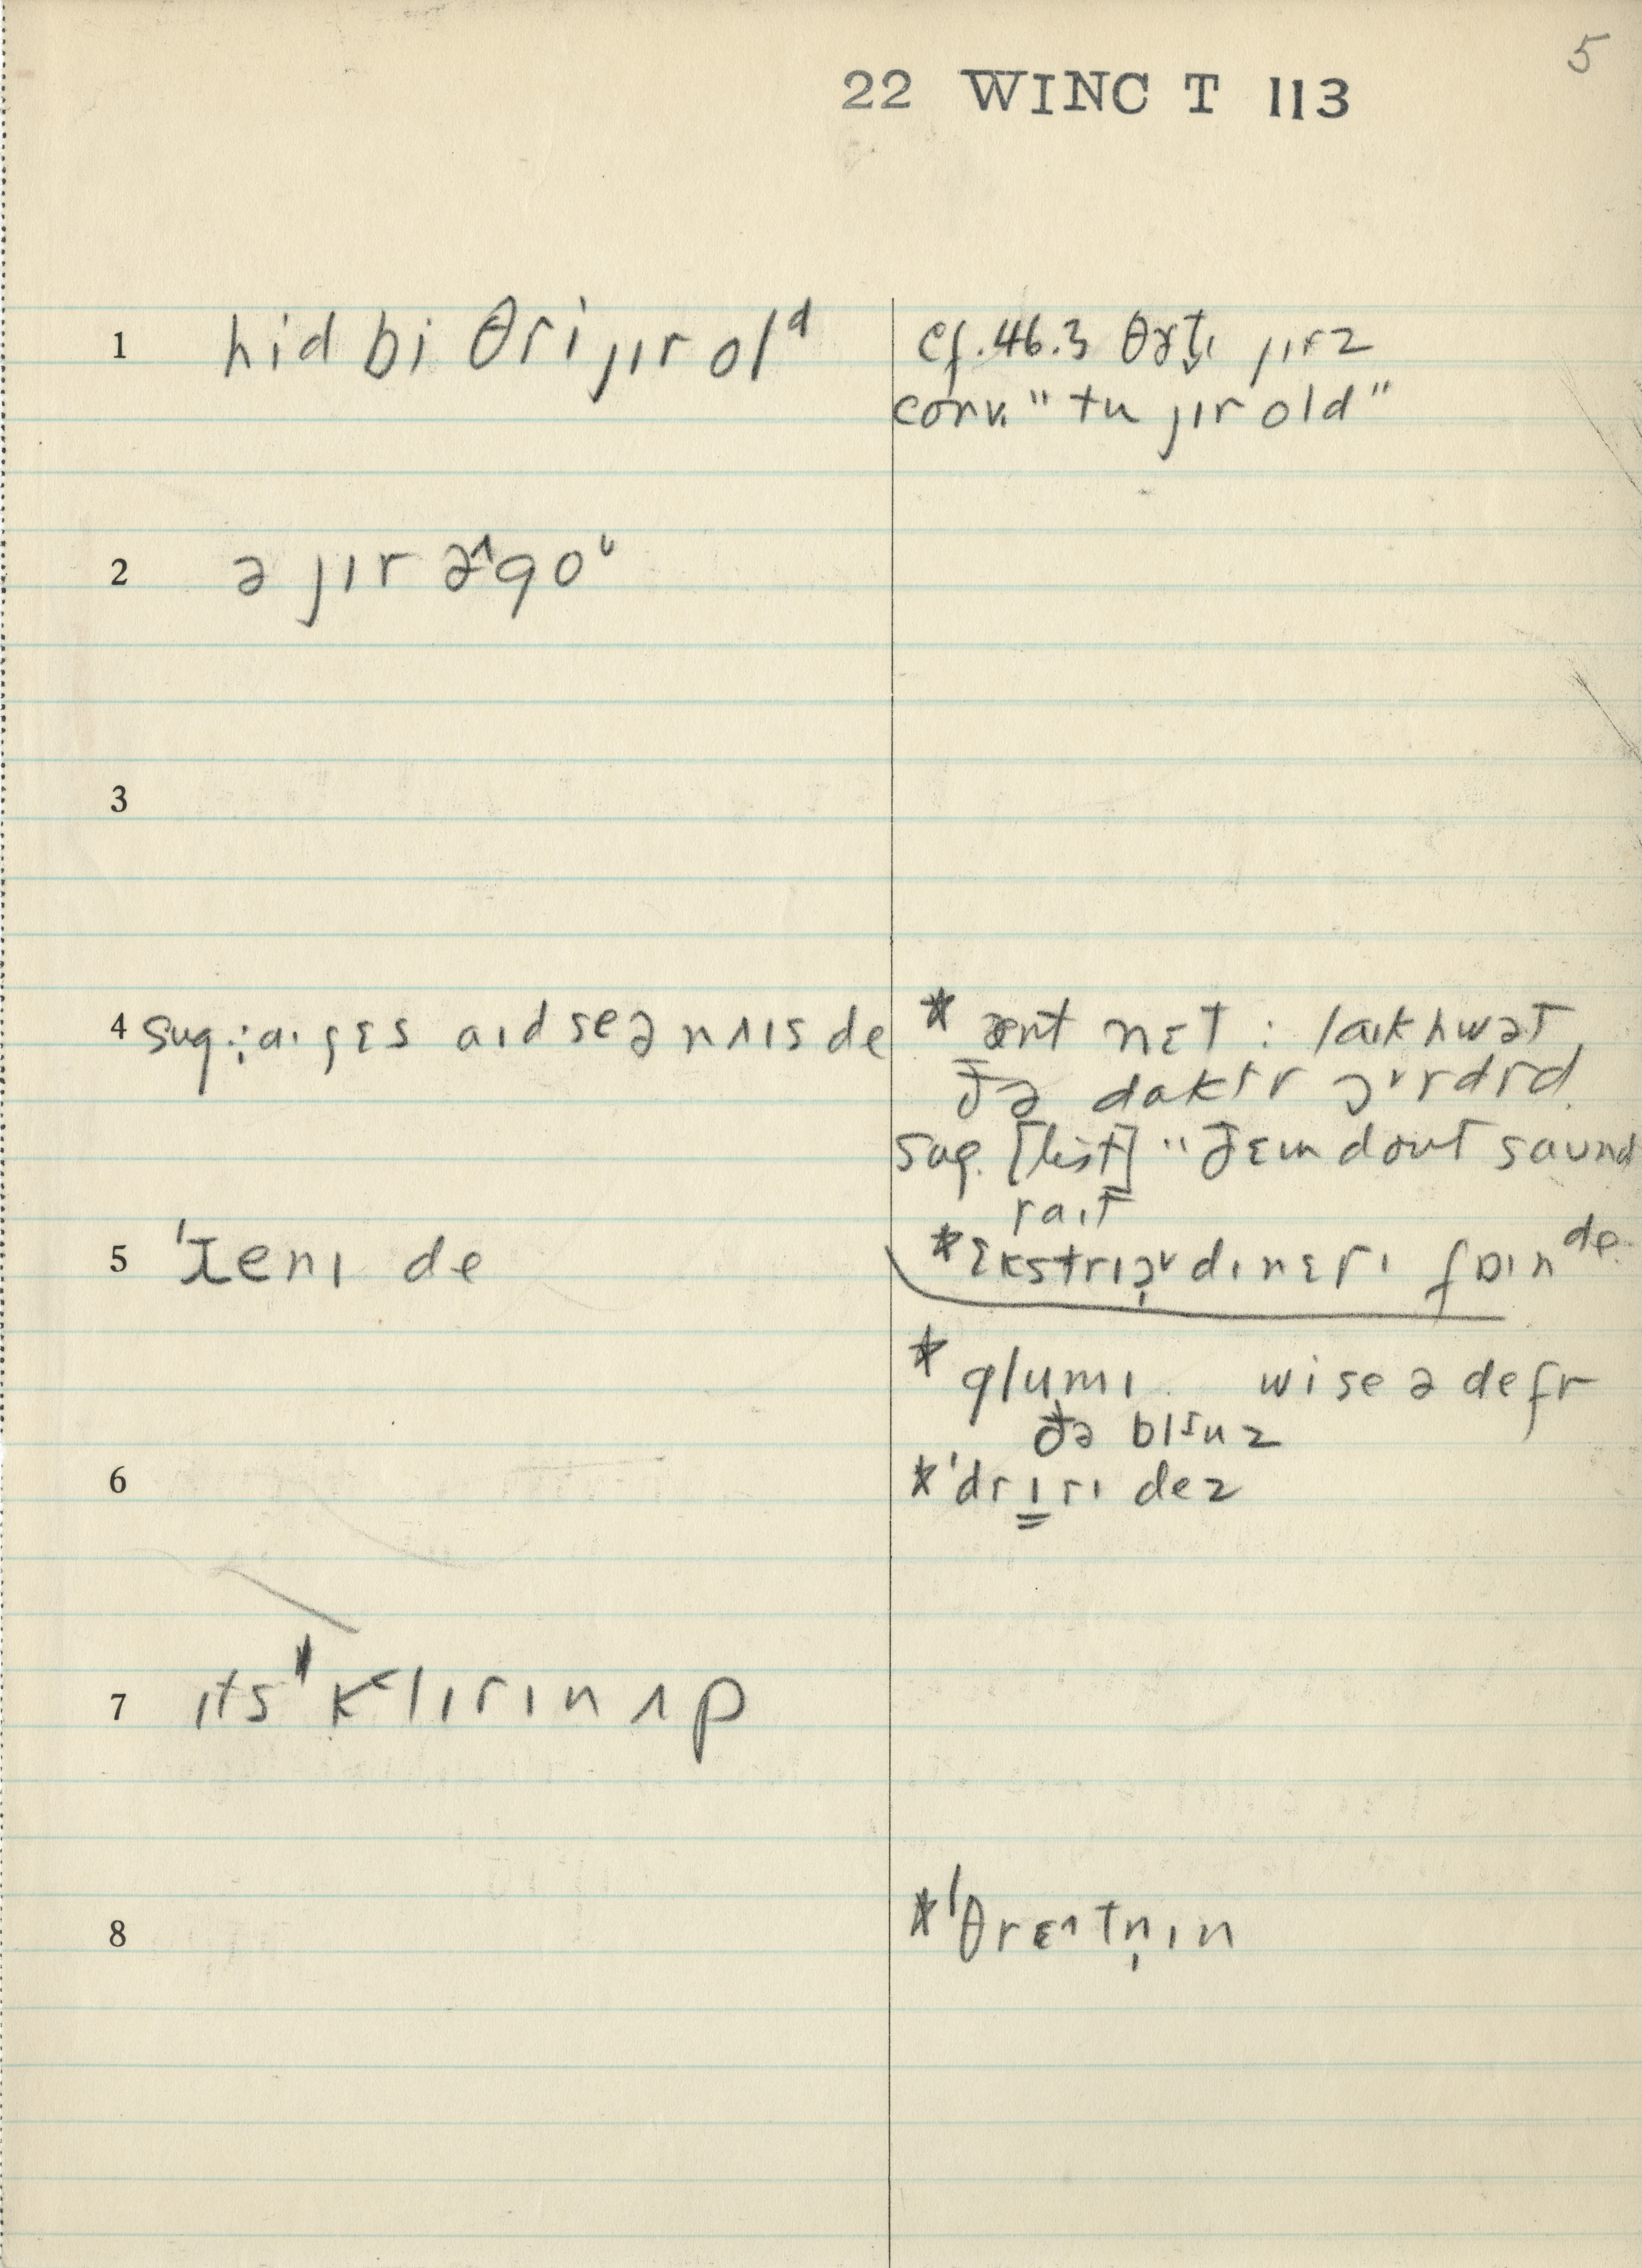 5
22 WINC T 113
1 hid bi θri jɪr olᵈ
cf. 46.3 θɝt̬ɪ jɪrz
conv. " tu jɪr old "
2 ə jɪr ə^goᶷ
3
4 sug.: aɪ gɛs aɪd se ə naɪs de
* ænt nɛt : laɪk hwət
ðə daktr ɔᵛrdrd.
sug. [list] " ðɛm dont saund
raɪt
5 ˈren ɪ de
* ɛkstrɪɔᵛdɪnɛrɪ faɪn ᵈᵉ·
* glumɪ. wi se ə de fr
ðə bluz
6
* ˈdrɪrɪ dez
7 ɪts ˈk<lɪrɪn ʌp
8
* ˈθrɛ^tn̩ɪn